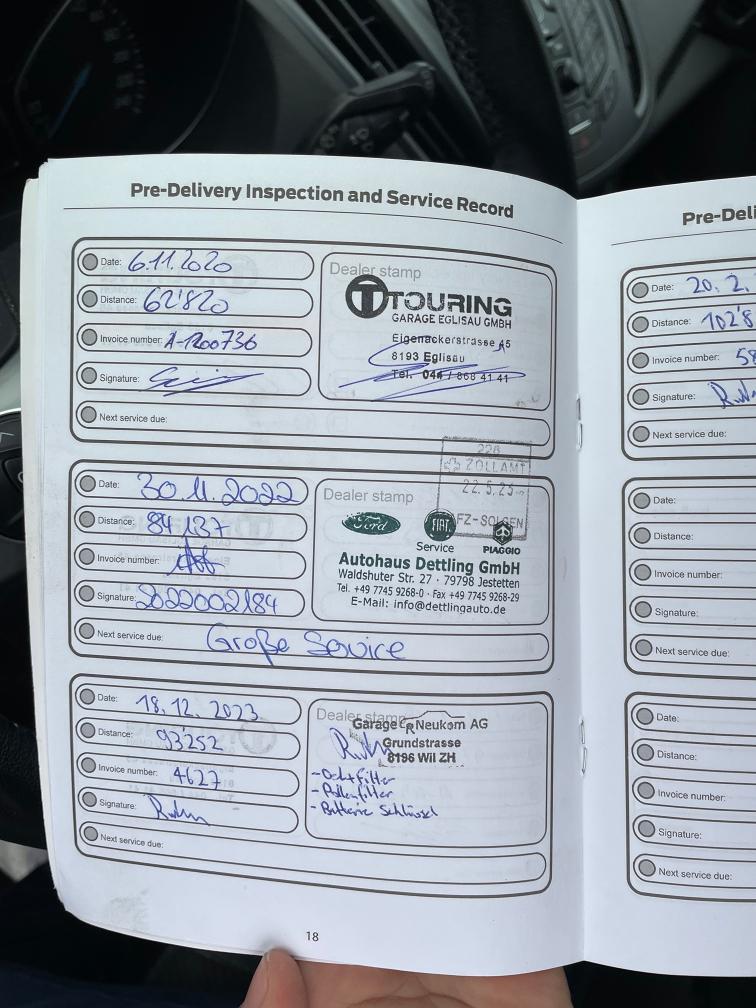 Pre-Delivery Inspection and Service Record
Date: 6.11.2020
Distance: 62'820
Invoice number: A-1200736
Signature:
Next service due:
Dealer stamp
TOURING
GARAGE EGLISAU GMBH
Eigenackerstrasse 45
8193 Eglisau
Tel. 044 / 868 41 41
Date: 30.11.2022
Distance: 84137
Invoice number:
Signature: 2022002184
Next service due: Große Service
226
ZOLLAMT
22.5.25
FZ-SOLGEN
Dealer stamp
Ford
FIAT
Service
PIAGGIO
Autohaus Dettling GmbH
Waldshuter Str. 27 · 79798 Jestetten
Tel. +49 7745 9268-0 · Fax +49 7745 9268-29
E-Mail: info@dettlingauto.de
Date: 18.12.2023
Distance: 93'252
Invoice number: 4627
Signature:
Next service due:
Dealer stamp
Garage Neukom AG
Grundstrasse
8196 Wil ZH
- Pollenfilter
- Batterie Schlüssel
18
Pre-Deli
Date: 20.2.
Distance: 102'8
Invoice number: 58
Signature:
Next service due:
Date:
Distance:
Invoice number:
Signature:
Next service due:
Date:
Distance:
Invoice number:
Signature:
Next service due: